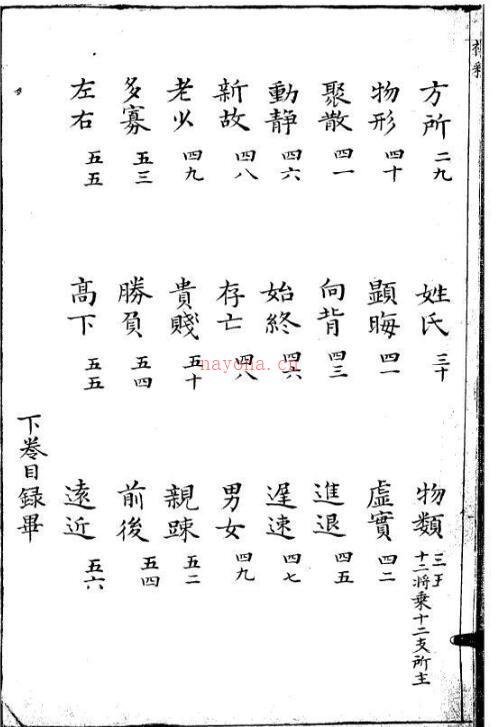 方所 二九 姓氏 三十 物類 三五 十二将乘十二支所主
物形 四十 顯晦 四一 虛實 四二
聚散 四一 向背 四三 進退 四五
動靜 四六 始終 四六 遲速 四七
新故 四八 存亡 四八 男女 四九
老少 四九 貴賤 五十 親踈 五二
多寡 五三 勝負 五四 前後 五四
左右 五五 髙下 五五 遠近 五六
下卷目録畢
nayona.cn